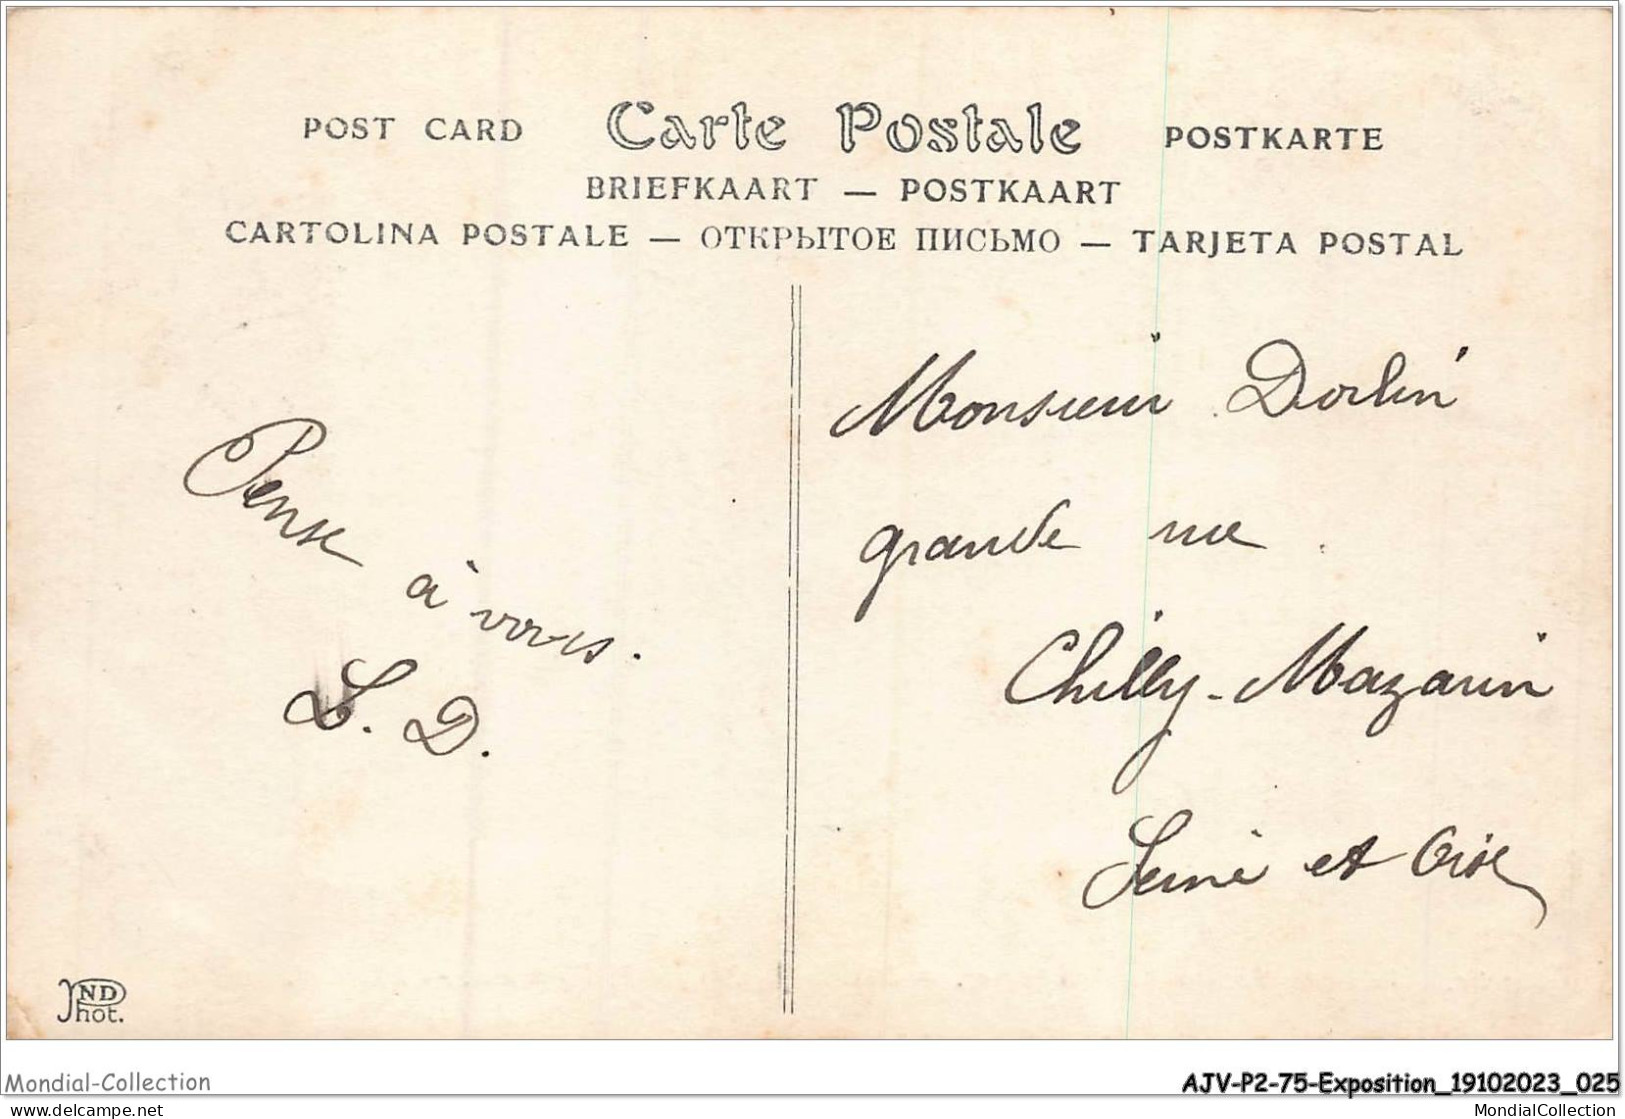 POST CARD Carte Postale POSTKARTE
BRIEFKAART — POSTKAART
CARTOLINA POSTALE — ОТКРЫТОЕ ПИСЬМО — TARJETA POSTAL
Pense
à vous.
L. D.
Monsieur Dorlin
grande rue
Chilly-Mazarin
Seine et Oise
ND
Phot.
Mondial-Collection
AJV-P2-75-Exposition_19102023_025
delcampe.net
MondialCollection